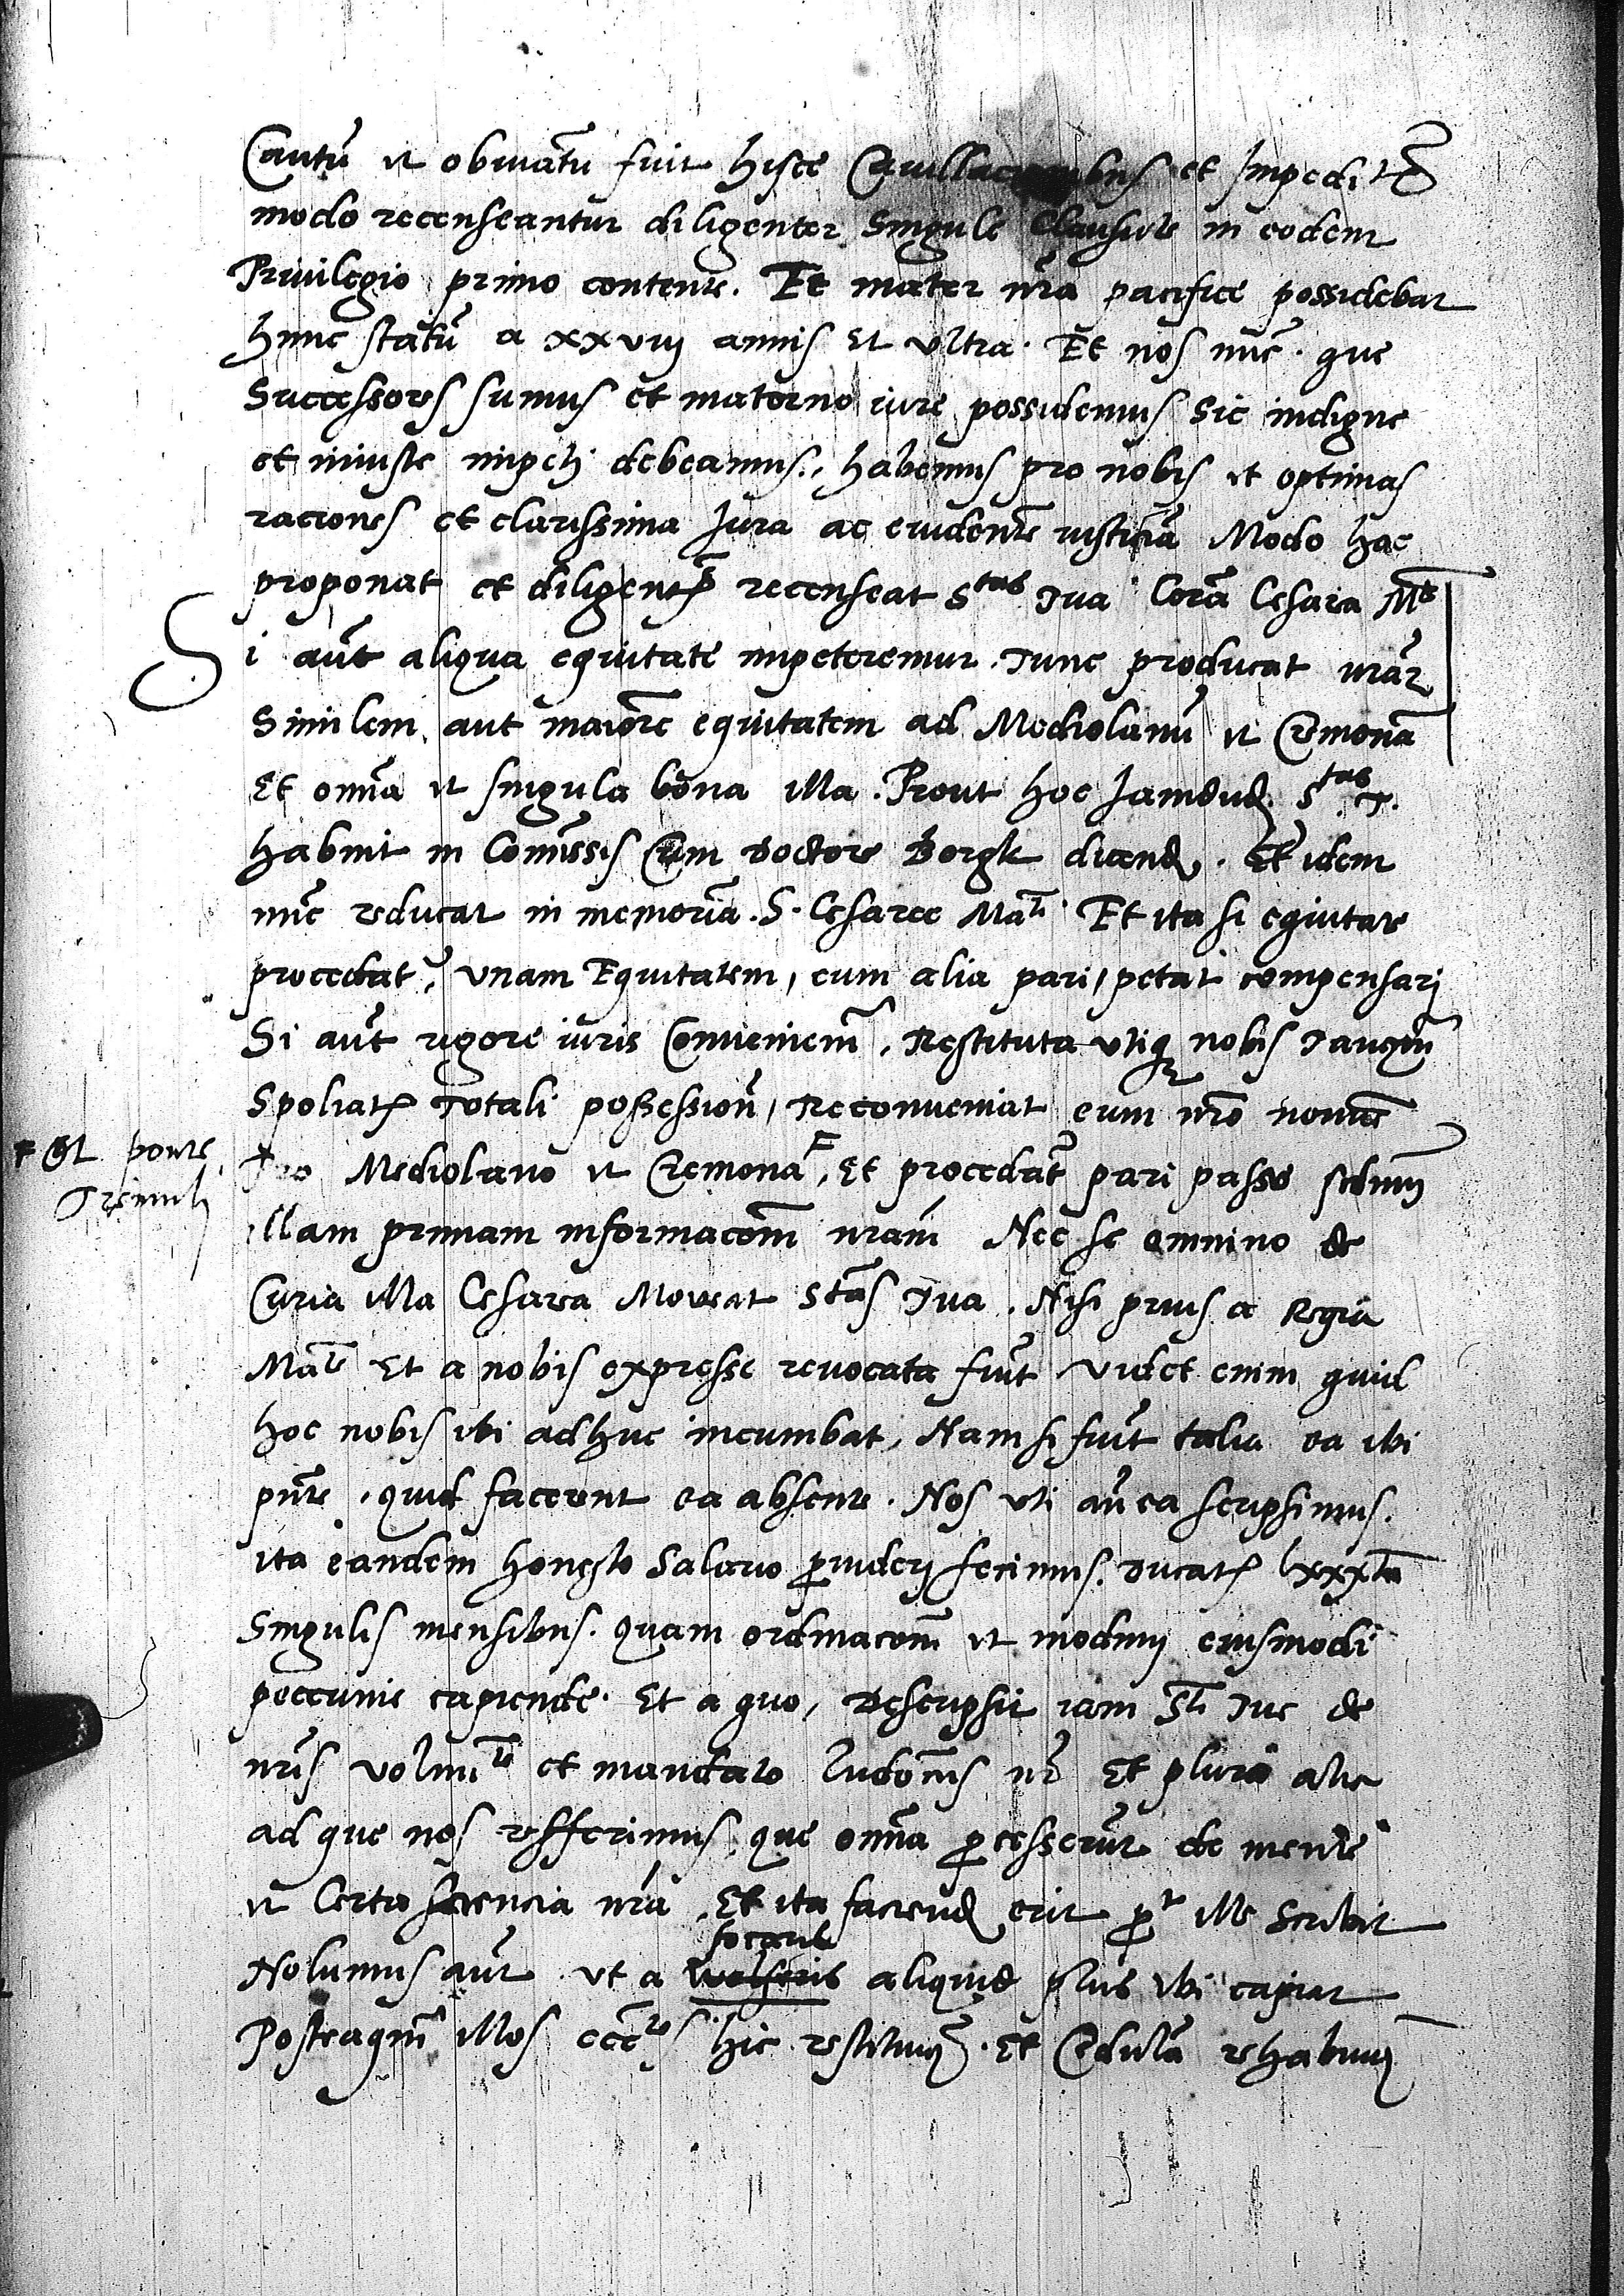 Cautũ et obuiatũ fuit hisce Cauillacionibus et Impeditis
modo recenseantur diligenter singule Clausule in eodem
Priuilegio primo contente. Et mater nrã pacifice possidebat
hunc statũ a xxviij annis Et vltra. Et nos nũc. que
Successores sumus et materno iure possidemus sic indigne
et iniuste impeti debeamus. habemus pro nobis et optimas
raciones et clarissima Jura ac euidente iusticiã Modo hac
proponat et diligentẽ recenseat Stas Tua Corã Cesarea Mte
Si aũt aliqua equitate impeteremur. Tunc producat nrãm
Similem aut maiorẽ equitatem ad Mediolanũ et Cremonã
Et omnĩa et singula bona illa. Prout hoc Jamdud. Stas T.
habuit in Comissis Cum Doctore Borgk dicend. Et idem
nũc reducat in memoriã. S. Cesaree Mati Et ita si equitate
procedat, vnam Equitatem, cum alia pari, petat compensari
Si aũt rigore iuris Conueniem̃, Restituta vtiq nobis Tanqm̃
Spoliat totali possession̄, Reconueniat eum nrõ nomĩe
Pro Mediolano et Cremona F, Et procedãt pari passo scdum
F Et ponte
Tremuli
illam primam informacom̃ nram̃ Nec se omnino de
Curia illa Cesarea Moueat Stãs Tua. Nisi prius a Regia
Mate Et a nobis expresse reuocata fuũt Videt enim quid
hoc nobis ibi adhuc incumbat, Nam si fiũt talia ea ibi
pñte. quid facerent ea absente. Nos vti añ ea scripsimus.
ita eandem honesto Salario ꝓuideri fecimus. Ducat lxxxta
Singulis mensibus. Quam ordinacom̃ et modum eiusmodi
peccunie capiende. Et a quo, Descripsit iam Sti Tue de
nris̃ volunte et mandato Ludouicus nr̃ Et plura alia
ad que nos refferimus, que omĩa ꝓcesserũt de mente
et Certa sciencia nrã, Et ita faciend erit ꝓt ille Scribit
Nolumus aũt vt a focaris aliquid plus ibi capiat
Postraqm̃ illos cccctos hic restituim̃. Et Cedulã rehabuim